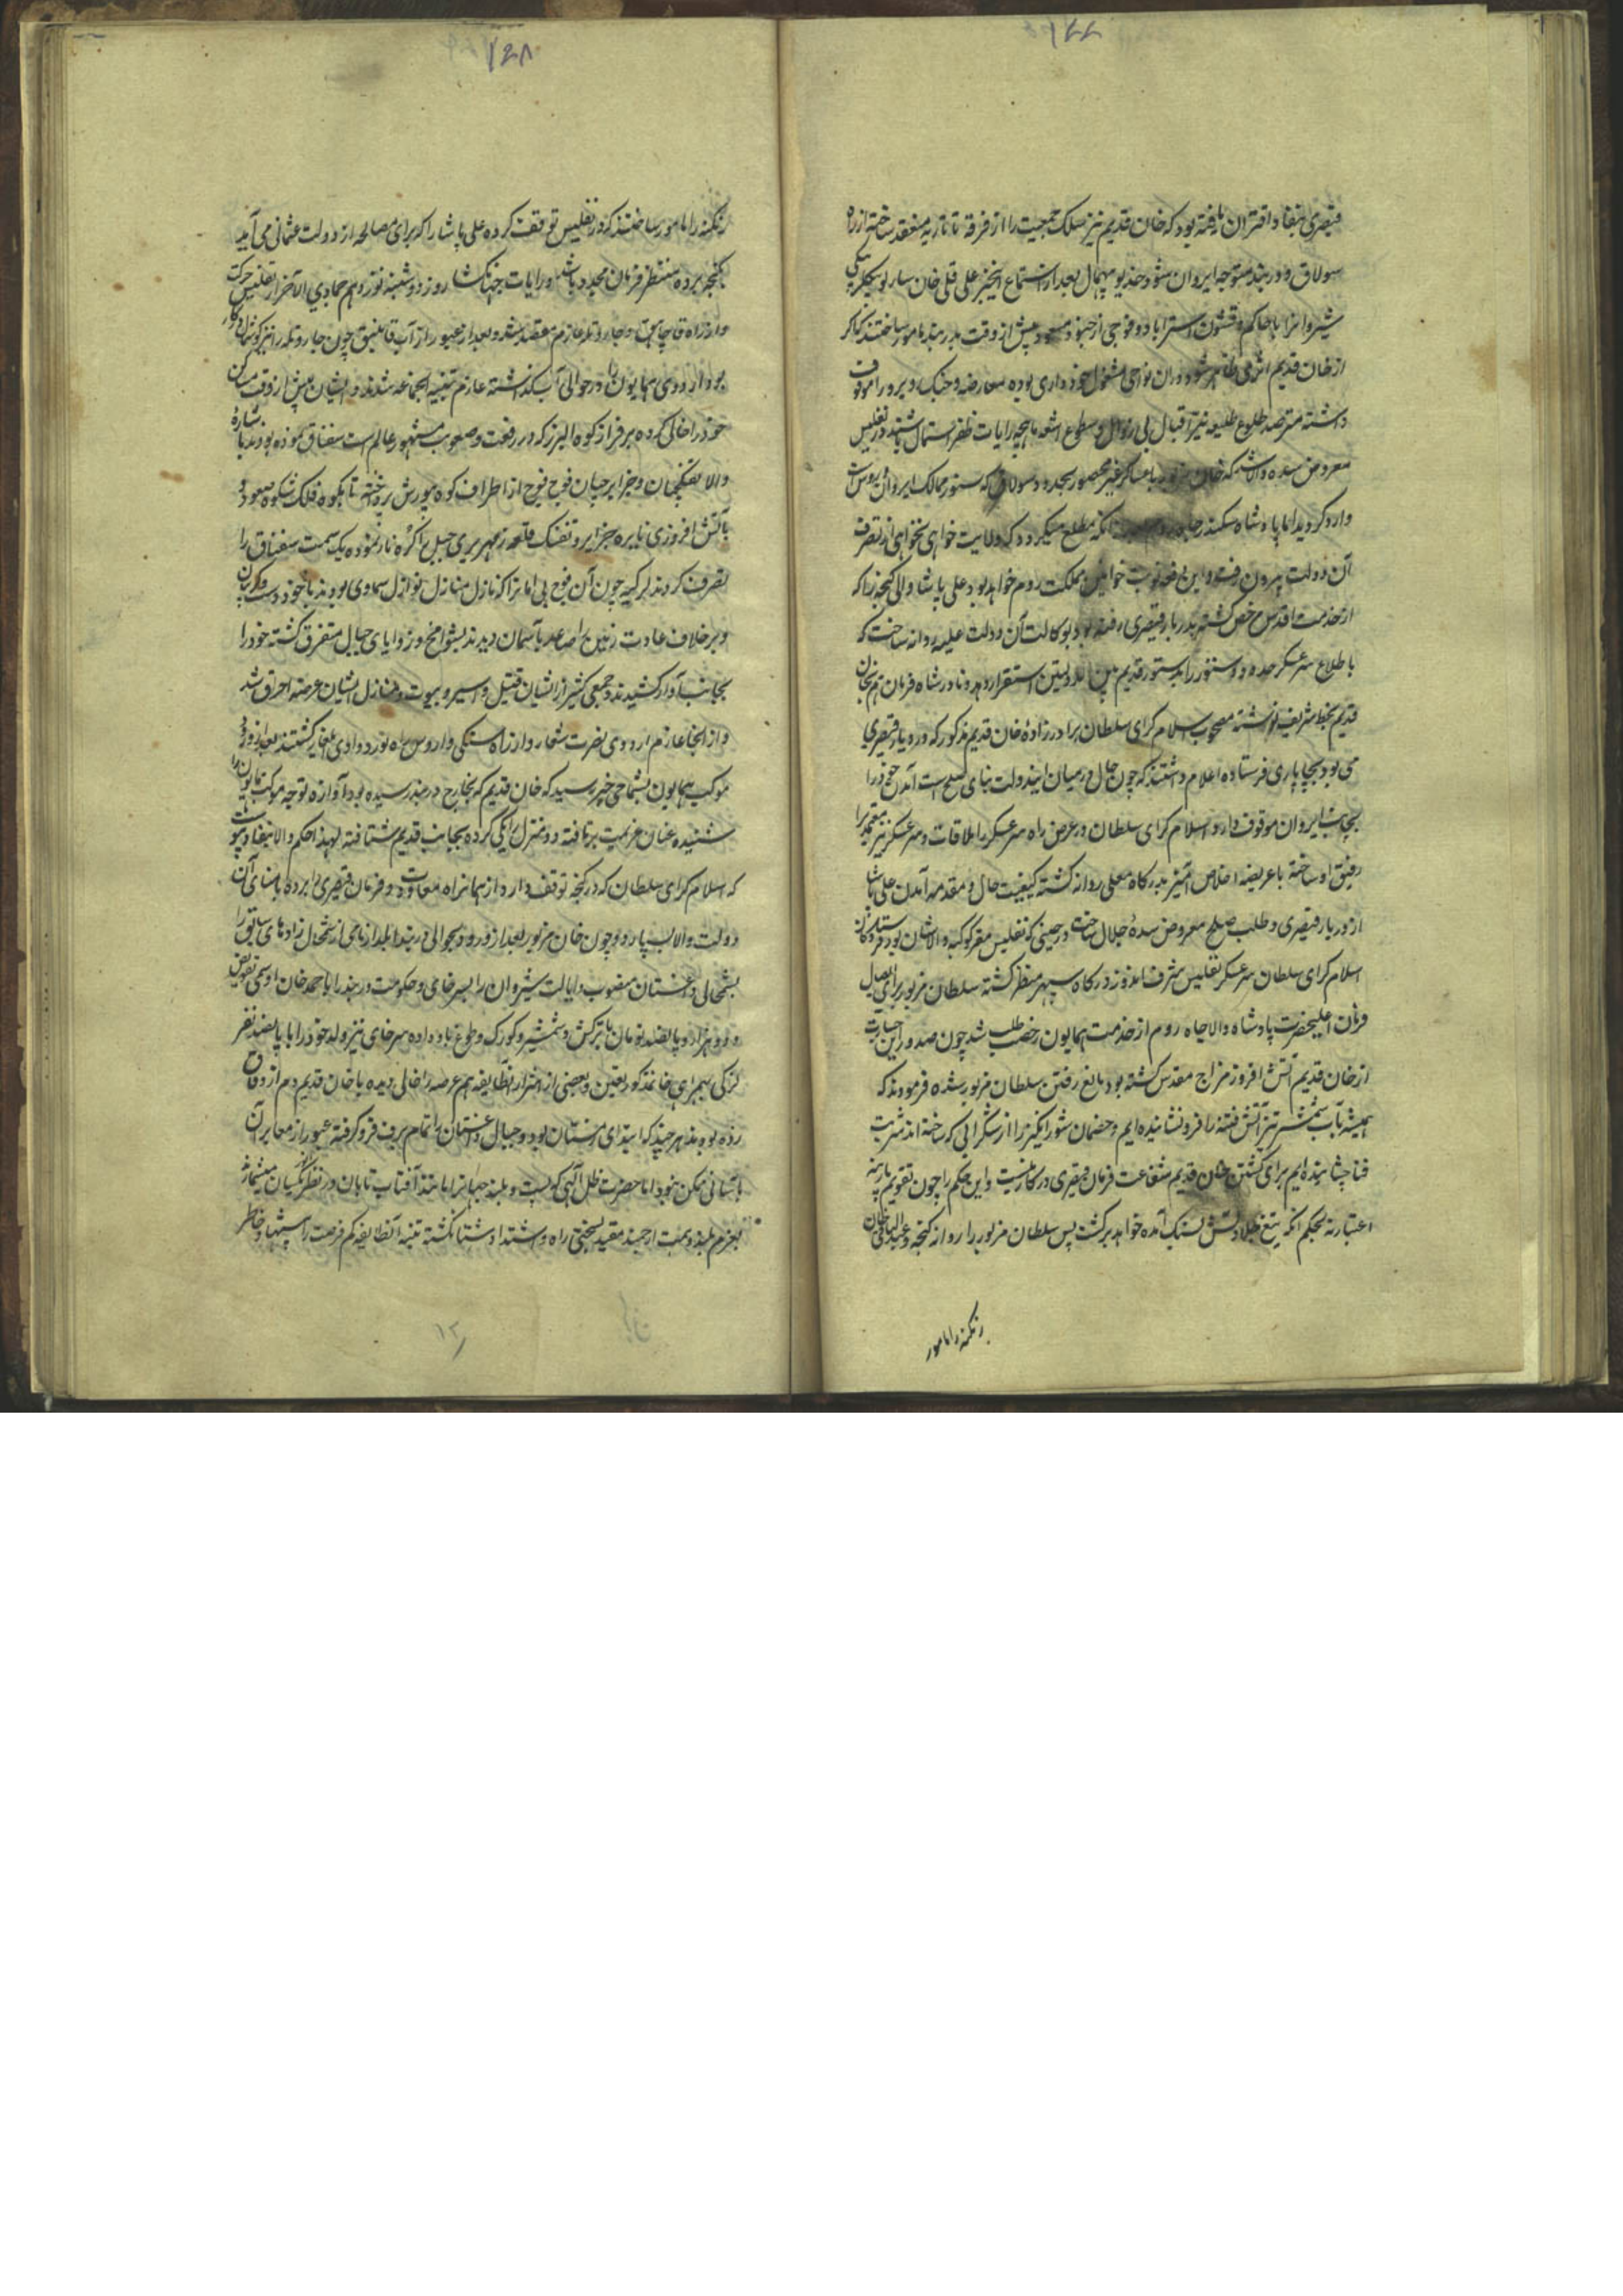 ۱۴۴
قیصری بنفاد اقتران یافته بود که خان قدیم نیز سلک جمعیت را از فرقه تاتاریه منعقد ساخته از راه
سولاق و دربند متوجه ایروان شود خدیو بیهمال بعد از استماع اینخبر علی قلی خان سارلو بیگلربیگی
شیروانرا با حاکم و قشون استراباد و فوجی از جنود مسعود پیش از وقت بدربند مامور ساختند که اگر
از خان قدیم اثری ظاهر شود در آن نواحی مشغول خود داری بوده معارضه و جنگ و یرو را موقوف
داشته مترصد طلوع طلیعه نیر اقبال بی زوال و سطوع اشعه ماهچه رایات ظفر اشتمال باشند در تفلیس
معروض سده والا شد که خان مزبور با عساکر غیر محصور بحدود سولاق که سنور ممالک ایروان و روس است
وارد گردید اما پادشاه سکندر جاه روم انکه مطلع میگردد که ولایت خواهی نخواهی از تصرف
آن دولت بیرون رفته و این دفعه نوبت خوانین مملکت روم خواهد بود علی پاشا والی گنجه را که
از خدمت اقدس مرخص گشته بدربار قیصری رفته بود بوکالت آن دولت علیه روانه ساخت که
با طلاع سرعسکر حدود و سنور را بدستور قدیم بین الدولتین استقرار دهد و نادرشاه فرمان هم بخان
قدیم بخط شریف نوشته مصحوب اسلام گرای سلطان برادرزاده خان قدیم مذکور که در دیار قیصری
می بود بچاپاری فرستاده اعلام داشتند که چون حال در میان ایندولت بنای صلح است آمدن خود را
بجانب ایروان موقوف دارد و اسلام گرای سلطان در عرض راه سرعسکر را ملاقات و سرعسکر نیز معتمدی را
رفیق او ساخته با عریضه اخلاص آمیز بدرگاه معلی روانه گشته کیفیت حال و مقدمه آمدن علی پاشا
از دربار قیصری و طلب صلح معروض سده جلال ساخت در حینی که تفلیس مقر کوکبه والا شان بود فرستادگان
اسلام گرای سلطان سرعسکر تفلیس شرف اندوز درگاه سپهر منظر گشته سلطان مزبور برای ایصال
فرمان اعلیحضرت پادشاه والاجاه روم از خدمت همایون رخصت طلب شد چون صدور این جسارت
از خان قدیم آتش افروز مزاج مقدس گشته بود مانع رفتن سلطان مزبور شده فرمودند که
همیشه بآب شمشیر تیز آتش فتنه را فرو نشانیده ایم و خصمان شورانگیز را از شکرابی که ساخته اند شربت
فنا چشانیده ایم برای کشتن خان قدیم شفاعت فرمان قیصری در کار نیست و این حکم را چون تقویم پارینه
اعتبار نه بحکم انکه تیغ جلادتش بسنگ آمده خواهد برگشت پس سلطان مزبور را روانه گنجه و عبدالباقی خان
زنگنه را مامور
۱۴۸
زنگنه را مامور ساختند که در تفلیس توقف کرده علی پاشا را که برای مصالحه از دولت عثمانی می آید
بگنجه برده منتظر فرمان مجدد باشد و رایات جهانگشا روز دوشنبه نوزدهم جمادی الآخر از تفلیس حرکت
و از راه قاچاق و جار و تله عازم مقصد شد و بعد از عبور از آب قانیق چون جار و تله را نیز گوشمال در کار
بود اردوی همایون را در حوالی آب گذاشته عازم تنبیه اینجماعه شدند و ایشان پیش از وقت مساکن
خود را خالی کرده بر فراز کوه البرز که در رفعت و صعوبت مشهور عالم است سقناق نموده بودند باشاره
والا تفنگچیان و جزایرچیان فوج فوج از اطراف کوه یورش برده تا بکوه فلک شکوه صعود و
بآتش افروزی نایره جزایر و تفنگ قله زمهریری جبل را کره نار نموده یک سمت سقناق را
تصرف کردند لزگیه چون آن فوج بی امانرا که نازل منازل نوازل سماوی بودند با خود دست و گریبان
و برخلاف عادت زمین را صاعد بآسمان دیدند بشوامخ و زوایای جبال متفرق گشته خود را
بجانب آوار کشیدند و جمعی کثیر از ایشان قتیل و اسیر و بیوت و منازل ایشان عرصه احراق شد
و از انجا عازم اردوی نصرت شمار و از راه شکی و ارس راه نورد وادی ایلغار گشتند بعد از ورود
موکب همایون بشماخی خبر رسید که خان قدیم که بخارج دربند رسیده بود آوازه توجه موکب همایون را
شنیده عنان عزیمت برتافته دو منزل را یکی کرده بجانب قدیم شتافته لهذا حکم والا بنفاذ پیوست
که اسلام گرای سلطان که در گنجه توقف دارد از همانراه معاودت و فرمان قیصری را برده بامنای آن
دولت والا بسپارد و چون خان مزبور بعد از ورود بحوالی دربند ایلدار نامی از شمخال زادهای سابق را
بشمخالی داغستان منصوب و ایالت شیروان را بسرخای و حکومت دربند را باحمد خان اوسمی تفویض
و دو هزار و پانصد تومان با ترکش و شمشیر و کورک و طوغ باو داده سرخای نیز ولد خود را با پانصد نفر
لزگی بهمراهی خان مذکور تعین و بعضی از اشرار آنطایفه هم عرصه را خالی دیده با خان قدیم دم از وفاق
زده بودند هر چند که ابتدای زمستان بود و جبال داغستان را تمام برف فرو گرفته عبور از معابر آن
بآسانی ممکن نبود اما حضرت ظل الهی که پست و بلند جهانرا مانند آفتاب تابان در نظر یکسان میشمارند
بعزم بلند و همت ارجمند مقید بسختی راه و شتداد شتا نگشته تنبیه آنطایفه کم فرصت را پیشنهاد خاطر
۱۲